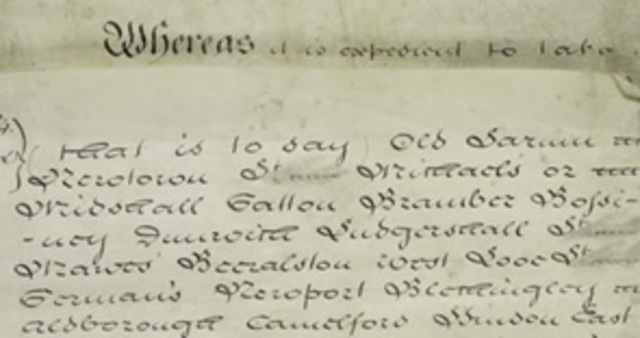 Whereas it is expedient to take
that is to say Old Sarum
Newtown St Michaels or
Midshall Gatton Bramber Bossi-
-ney Dunwich Ludgershall St
Mawes Beeralston West Looe St
Germans Newport Bletchingley
Aldborough Camelford Hindon East